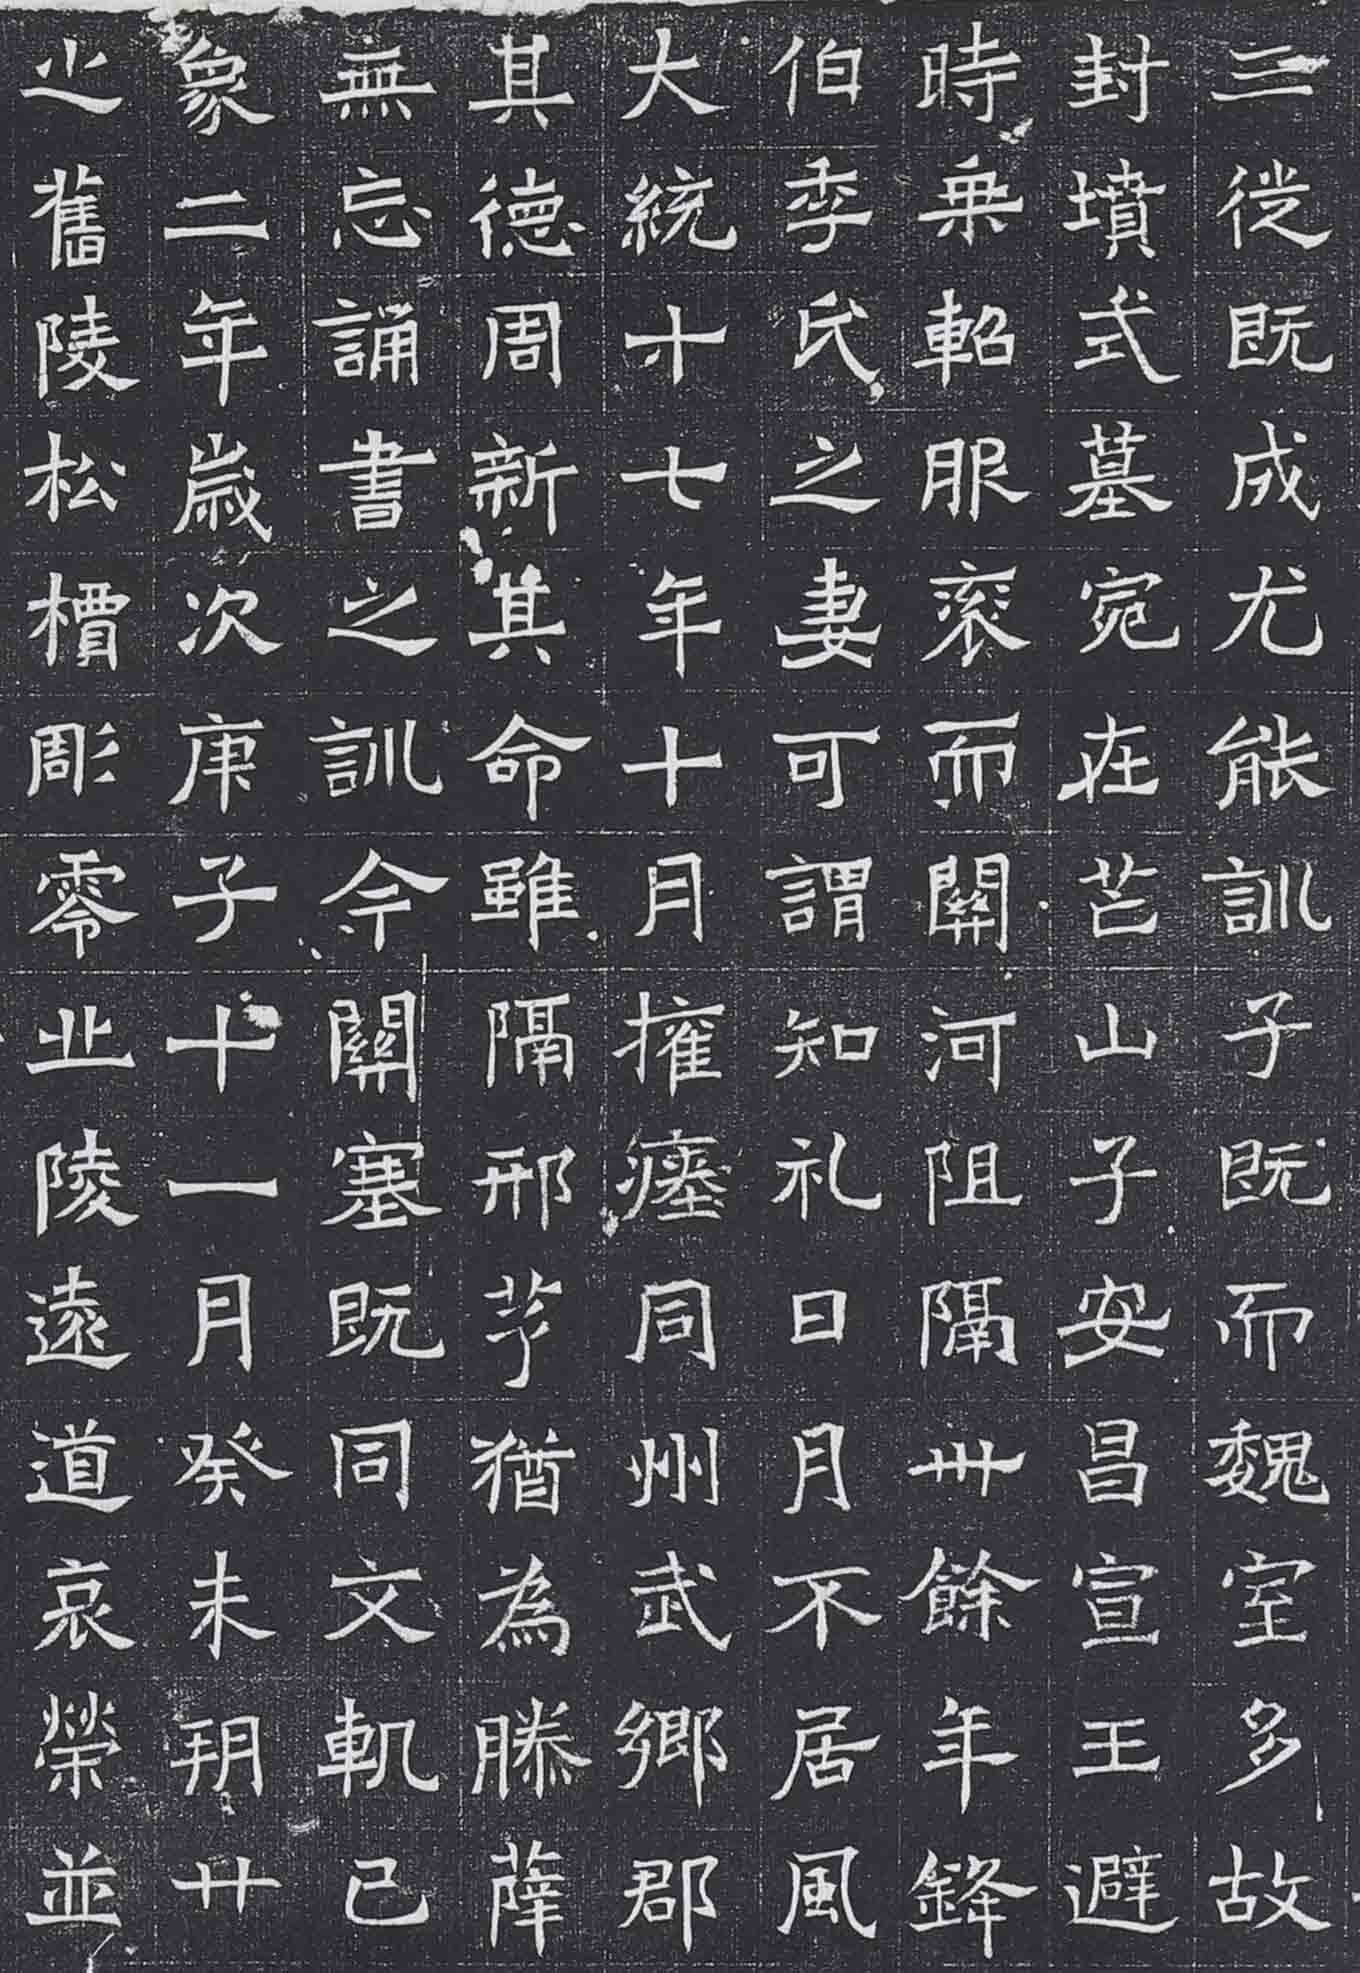 三従既成尤能訓子既而魏室多故
封墳式墓宛在芒山子安昌宣王避
時乗軺服衮而關河阻隔卅餘年鋒
伯季氏之妻可謂知礼日月不居風
大統十七年十月擁瘗同州武鄉郡
其德周新其命雖隔邢芧猶為滕薛
無忘誦書之訓今關塞既同文軌已
象二年歲次庚子十一月癸未朔廿
之舊陵松檟彫零北陵遠道哀榮並